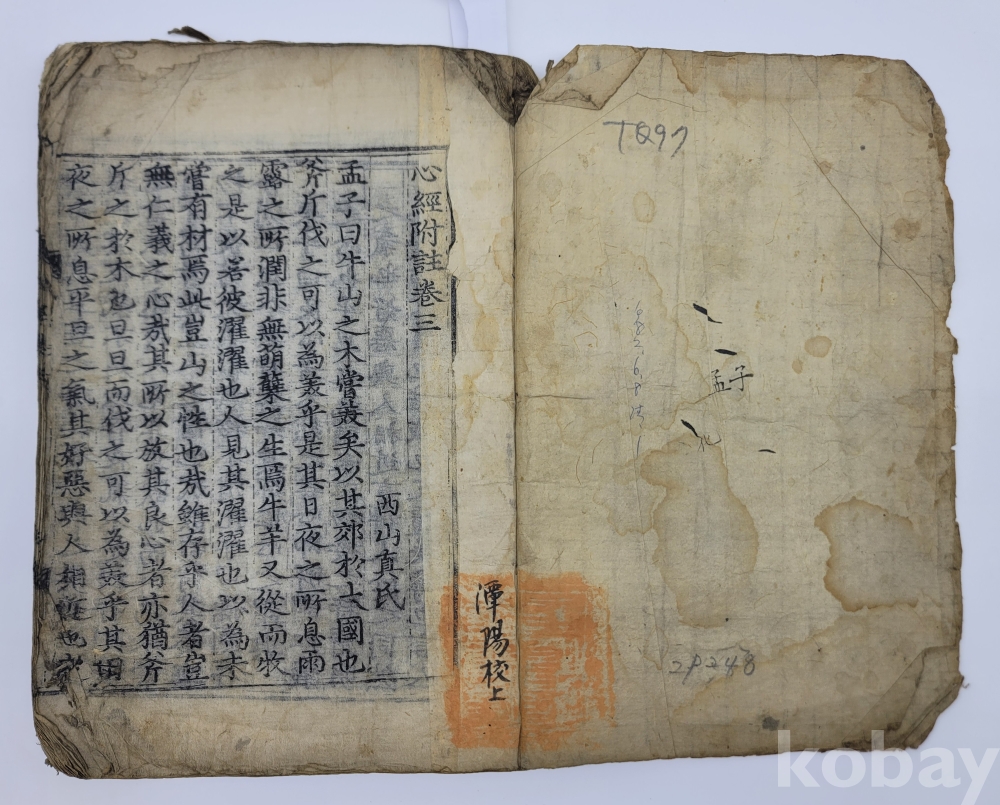 TQ97
孟子
2P248
潭陽校上
心經附註卷三
西山真氏
孟子曰牛山之木嘗羙矣以其郊於大國也
斧斤伐之可以為羙乎是其日夜之所息雨
露之所潤非無萌蘖之生焉牛羊又從而牧
之是以若彼濯濯也人見其濯濯也以為未
嘗有材焉此豈山之性也哉雖存乎人者豈
無仁義之心哉其所以放其良心者亦猶斧
斤之於木也旦旦而伐之可以為羙乎其日
夜之所息平旦之氣其好惡與人相近也
kobay